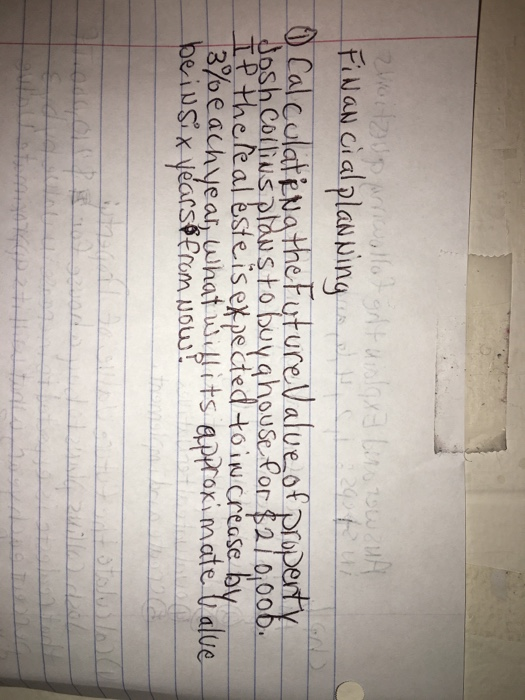 Financial planning
① Calculating the Future Value of property
Josh Collins plans to buy a house for $210,000.
If the real este is expected to increase by
3% each year, what will its approximate value
be in six years from now?